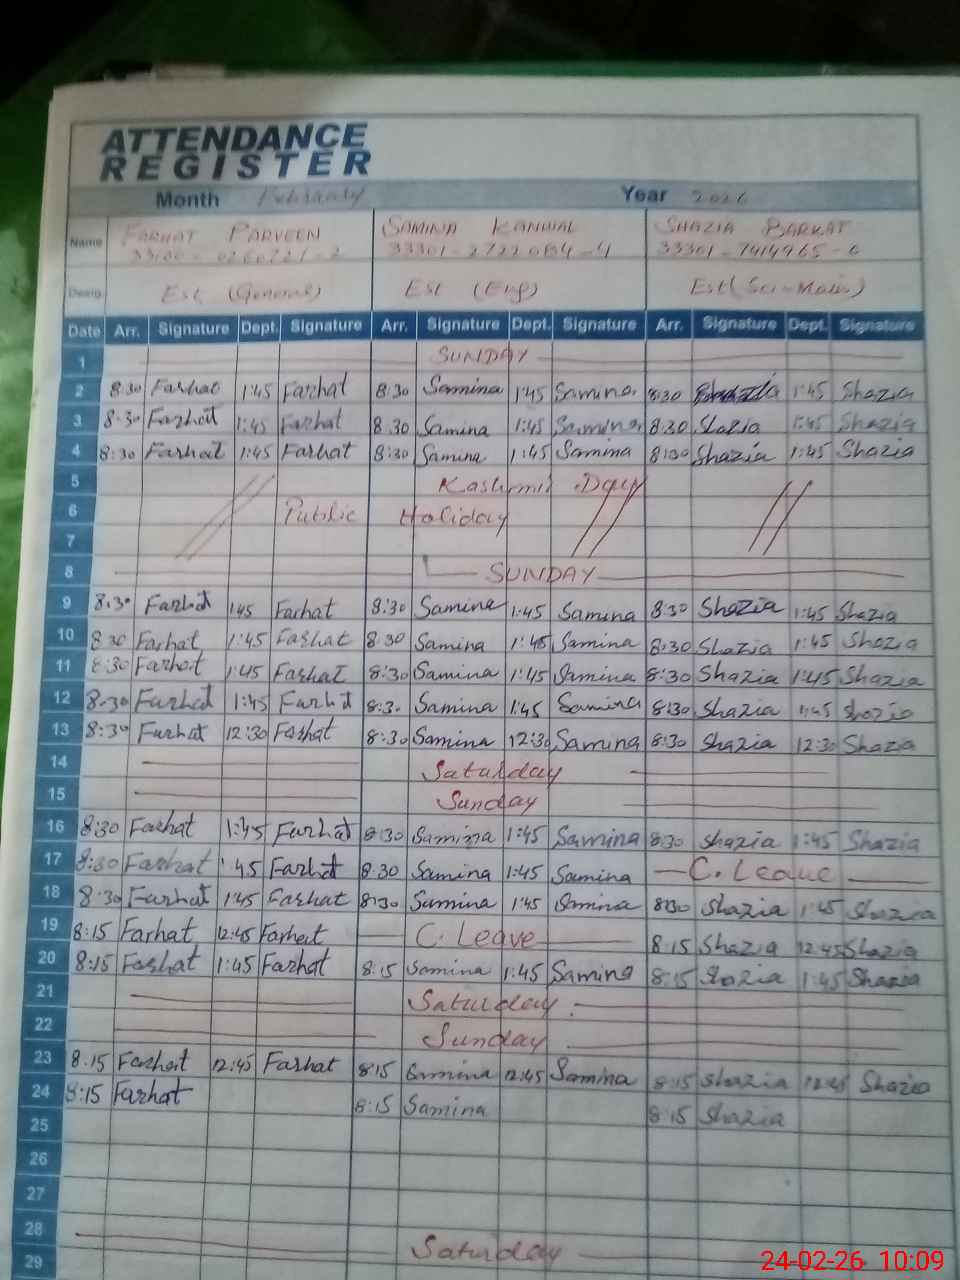 ATTENDANCE
REGISTER
Month February Year 2026
Name FARHAT PARVEEN SAMINA KANWAL SHAZIA BARKAT
33301-7414965-6
Desig. Est (General) Est (Eng) Est (Sci-Math)
Date Arr. Signature Dept. Signature Arr. Signature Dept. Signature Arr. Signature Dept. Signature
1 SUNDAY
2 8:30 Farhat 1:45 Farhat 8:30 Samina 1:45 Samina 8:30 Shazia 1:45 Shazia
3 8:30 Farhat 1:45 Farhat 8:30 Samina 1:45 Samina 8:30 Shazia 1:45 Shazia
4 8:30 Farhat 1:45 Farhat 8:30 Samina 1:45 Samina 8:30 Shazia 1:45 Shazia
5 Kashmir Day
6 Public Holiday
7
8 SUNDAY
9 8:30 Farhat 1:45 Farhat 8:30 Samina 1:45 Samina 8:30 Shazia 1:45 Shazia
10 8:30 Farhat 1:45 Farhat 8:30 Samina 1:45 Samina 8:30 Shazia 1:45 Shazia
11 8:30 Farhat 1:45 Farhat 8:30 Samina 1:45 Samina 8:30 Shazia 1:45 Shazia
12 8:30 Farhat 1:45 Farhat 8:30 Samina 1:45 Samina 8:30 Shazia 1:45 Shazia
13 8:30 Farhat 12:30 Farhat 8:30 Samina 12:30 Samina 8:30 Shazia 12:30 Shazia
14 Saturday
15 Sunday
16 8:30 Farhat 1:45 Farhat 8:30 Samina 1:45 Samina 8:30 Shazia 1:45 Shazia
17 8:30 Farhat 1:45 Farhat 8:30 Samina 1:45 Samina C. Leave
18 8:30 Farhat 1:45 Farhat 8:30 Samina 1:45 Samina 8:30 Shazia 1:45 Shazia
19 8:15 Farhat 12:45 Farhat C. Leave 8:15 Shazia 12:45 Shazia
20 8:15 Farhat 1:45 Farhat 8:15 Samina 1:45 Samina 8:15 Shazia 1:45 Shazia
21 Saturday
22 Sunday
23 8:15 Farhat 12:45 Farhat 8:15 Samina 12:45 Samina 8:15 Shazia 12:45 Shazia
24 8:15 Farhat 8:15 Samina 8:15 Shazia
25
26
27
28 Saturday
29
24-02-26 10:09